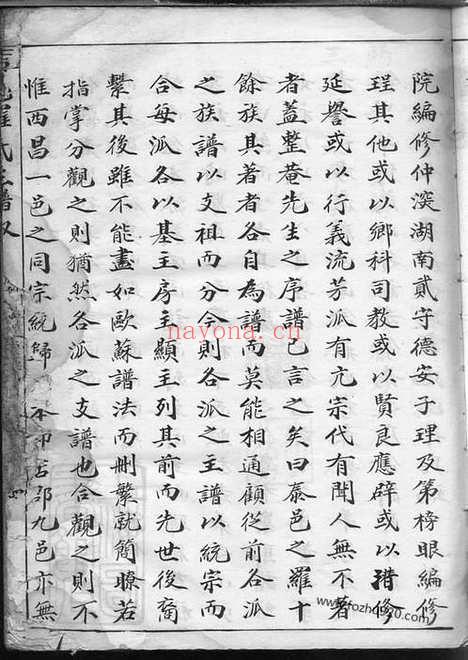 院編修仲溪湖南貳守德安子理及第榜眼編修
珵其他或以鄉科司教或以賢良應辟或以藉修
延譽或以行義流芳派有亢宗代有聞人無不著
者蓋整庵先生之序譜已言之矣曰泰邑之羅十
餘族其著者各自為譜而莫能相通顧從前各派
之族譜以支祖而分今則各派之主譜以統宗而
合每派各以基主房主顯主列其前而先世後裔
繫其後雖不能盡如歐蘇譜法而刪繁就簡瞭若
指掌分觀之則猶然各派之支譜也合觀之則不
惟西昌一邑之同宗統歸 本 吉郡九邑亦無
羅氏主譜
nayona.cn
www.fozhu920.com